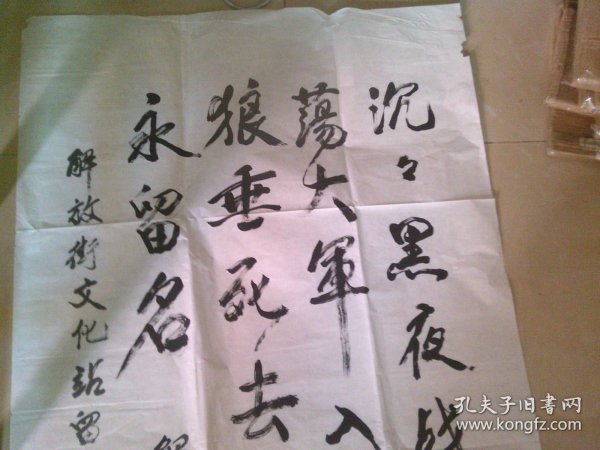 沉々黑夜战
荡大軍入
狼垂死去
永留名
解放街文化站留
孔夫子旧書网
www.kongfz.com